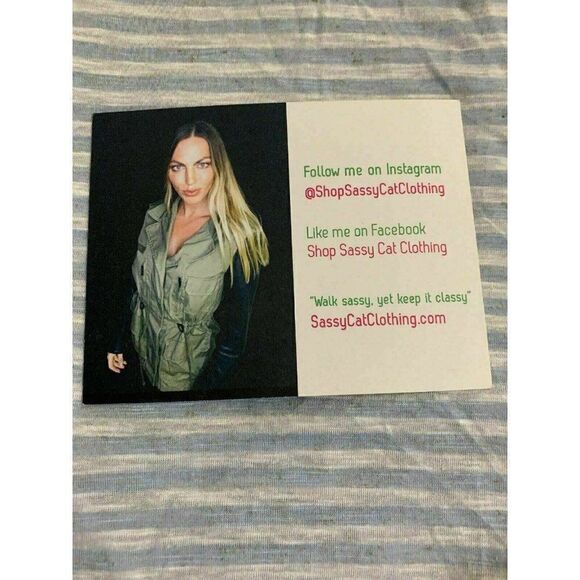 Follow me on Instagram
@ShopSassyCatClothing
Like me on Facebook
Shop Sassy Cat Clothing
"Walk sassy, yet keep it classy"
SassyCatClothing.com